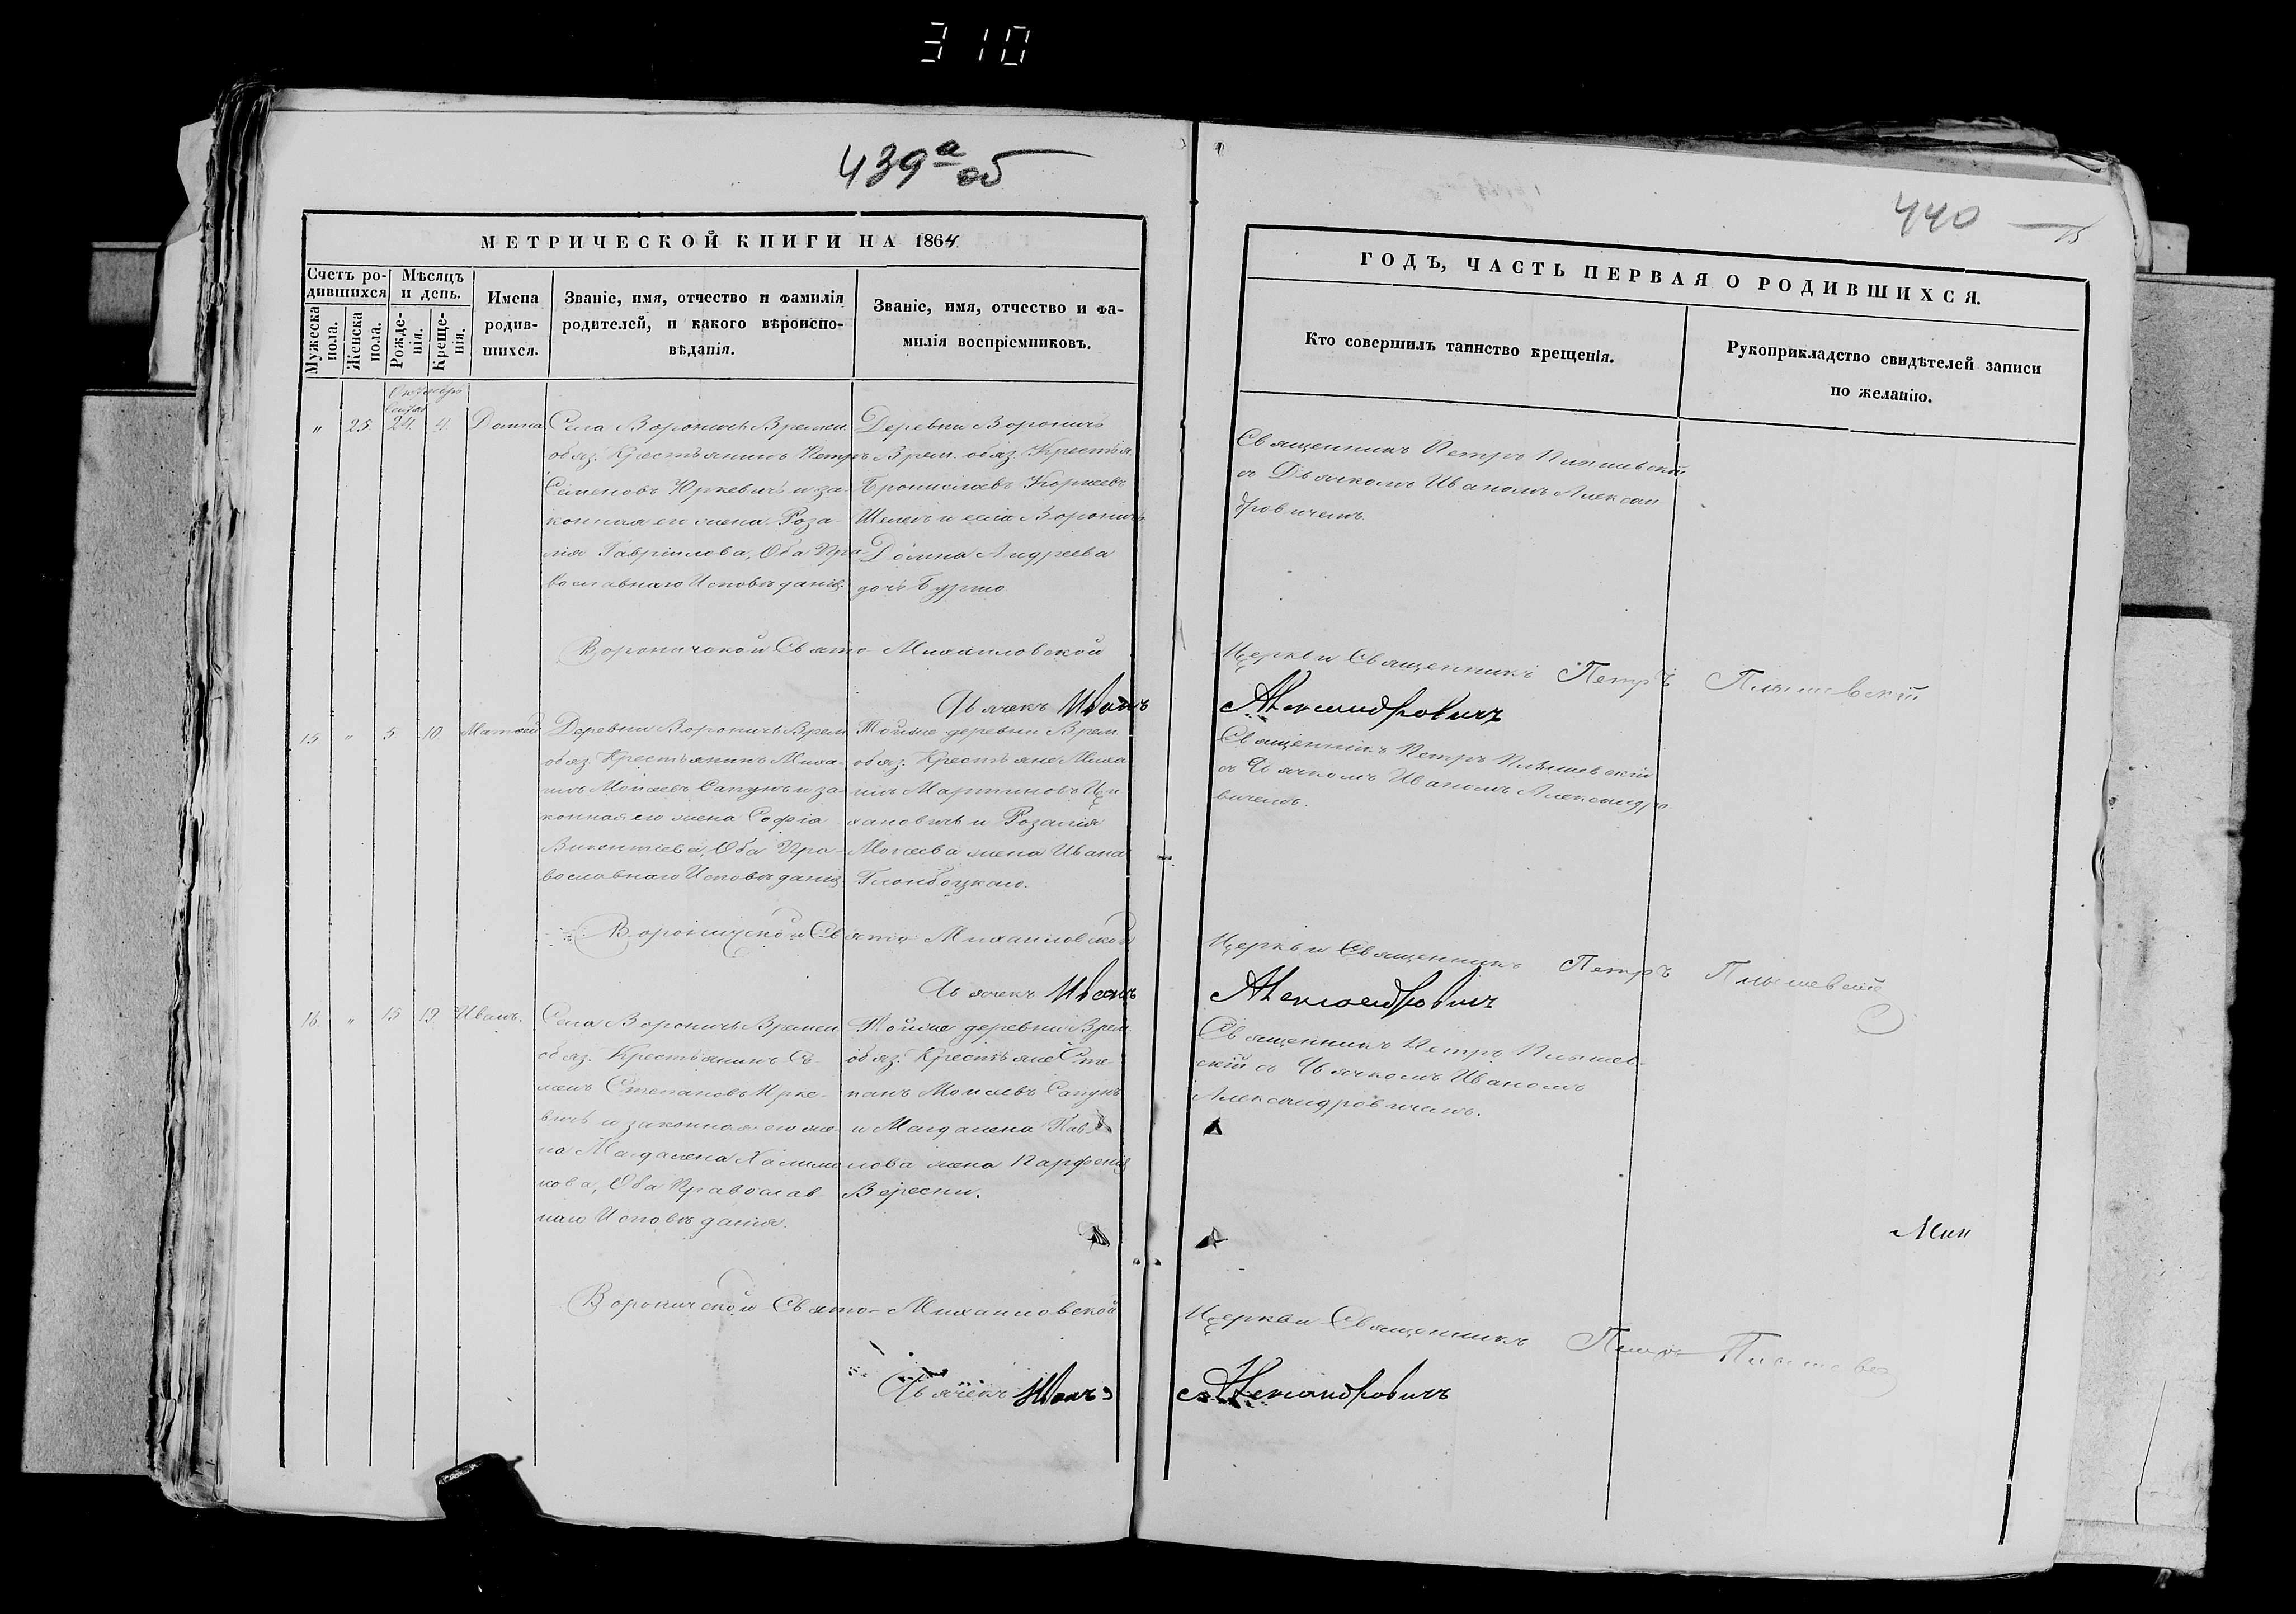 310
439 а об
440
МЕТРИЧЕСКОЙ КНИГИ НА 1864
ГОДЪ, ЧАСТЬ ПЕРВАЯ О РОДИВШИХСЯ.
Счетъ родившихся
Мужеска пола.
Женска пола.
Мѣсяцъ и день.
Рожденія.
Крещенія.
Имена родившихся.
Званіе, имя, отчество и фамилія
родителей, и какого вѣроиспо-
вѣданія.
Званіе, имя, отчество и фа-
милія воспріемниковъ.
Кто совершилъ таинство крещенія.
Рукоприкладство свидѣтелей записи
по желанію.
Октябрь
„ 25 24 4 Домна
Села Вороничъ Времен.
обяз. Крестьянинъ Петръ
Семеновъ Юркевичъ и за-
конная его жена Роза-
лія Гавріилова, Оба Пра
вославнаго Исповѣданія.
Деревни Вороничъ
Врем. обяз. Крестья.
Корнеевъ
и села Вороничъ
Домна Андреева
дочь
Священникъ Петръ
съ Дьячкомъ Иваномъ Алексан
дровичемъ.
Вороничской Свято-Михаиловской
Церкви Священникъ Петръ
Дьячекъ Иванъ
Александровичъ
15 „ 5 10
Деревни Вороничъ Врем.
обяз. Крестьянинъ Миха-
илъ Моисеевъ Сапунъ и за-
конная его жена Софія
Викентіева, Оба Пра-
вославнаго Исповѣданія.
Тойже деревни Врем.
обяз. Крестьяне Миха-
илъ Мартиновъ
и Розалія
жена Ивана
Священникъ Петръ
съ Дьячкомъ Иваномъ Александро
вичемъ.
Вороничской Свято-Михаиловской
Церкви Священникъ Петръ
Дьячекъ Иванъ
Александровичъ
16. „ 15 19 Иванъ.
Села Вороничъ Времен.
обяз. Крестьянинъ Се-
менъ Степановъ Юрке-
вичъ и законная его же-
на Магдалена
Оба Православ-
наго Исповѣданія.
Тойже деревни Врем.
обяз. Крестьяне Сте-
панъ Моисеевъ Сапунъ
и Магдалена Пав-
лова жена Парфенія
Священникъ Петръ
съ Дьячкомъ Иваномъ
Александровичемъ.
Мин
Вороничской Свято-Михаиловской
Церкви Священникъ Петръ
Дьячекъ Иванъ
Александровичъ